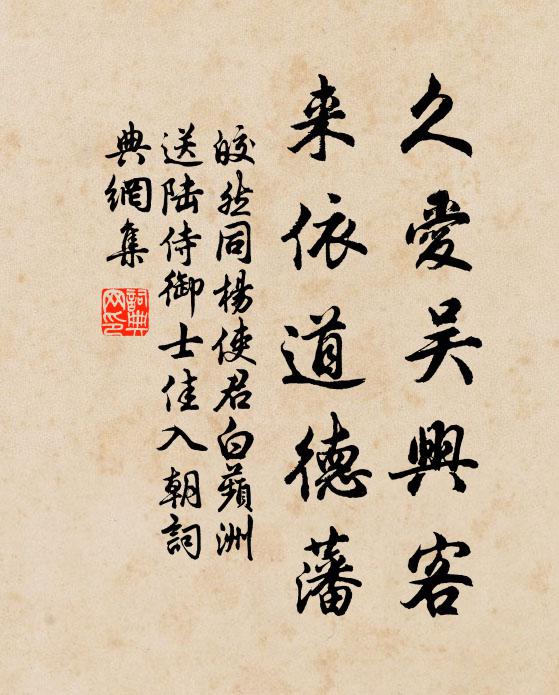 久愛吴興客
来依道德藩
皎然同楊使君白蘋洲
送陆侍御士佳入朝詞
典網集
詞典
网印